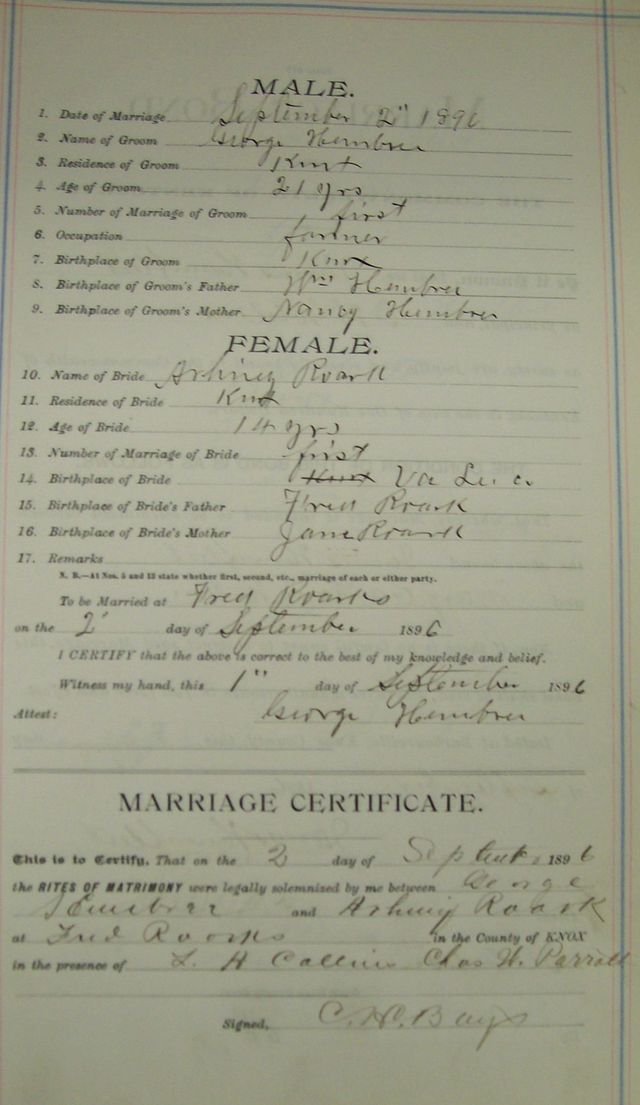 MALE.
1. Date of Marriage September 2" 1896
2. Name of Groom George Hembree
3. Residence of Groom Knox
4. Age of Groom 21 yrs
5. Number of Marriage of Groom first
6. Occupation farmer
7. Birthplace of Groom Knox
8. Birthplace of Groom's Father Wm Hembree
9. Birthplace of Groom's Mother Nancy Hembree
FEMALE.
10. Name of Bride Arhiney Roark
11. Residence of Bride Knox
12. Age of Bride 14 yrs
13. Number of Marriage of Bride first
14. Birthplace of Bride Knox Va
15. Birthplace of Bride's Father Fred Roark
16. Birthplace of Bride's Mother Jane Roark
17. Remarks
N. B.—At Nos. 5 and 13 state whether first, second, etc., marriage of each or either party.
To be Married at Fred Roarks
on the 2" day of September 1896
I CERTIFY that the above is correct to the best of my knowledge and belief.
Witness my hand, this 1" day of September 1896
Attest: George Hembree
MARRIAGE CERTIFICATE.
This is to Certify, That on the 2 day of September 1896
the RITES OF MATRIMONY were legally solemnized by me between George
Hembree and Arhiney Roark
at Fred Roarks in the County of KNOX
in the presence of L. H Collins Chas H. Parrott
Signed, C. H. Bays